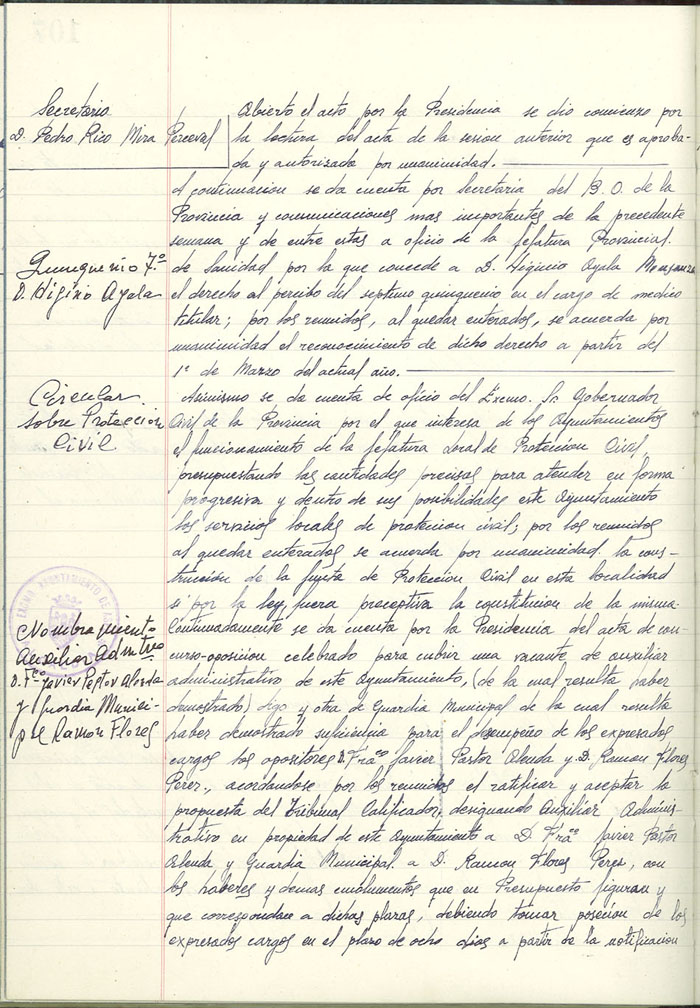 Secretario
D. Pedro Rico Mira Perceval
Abierto el acto por la Presidencia se dio comienzo por
la lectura del acta de la sesion anterior que es aproba-
da y autorizada por unanimidad.
A continuacion se da cuenta por Secretaria del B.O. de la
Provincia y comunicaciones mas importantes de la precedente
semana y de entre estas a oficio de la Jefatura Provincial
Quinquenio 7º
D. Higinio Ayala
de Sanidad por la que concede a D. Higinio Ayala
el derecho al percibo del septimo quinquenio en el cargo de medico
titular; por los reunidos, al quedar enterados, se acuerda por
unanimidad el reconocimiento de dicho derecho a partir del
1º de Marzo del actual año.
Circular
sobre Proteccion
Civil
Asimismo se da cuenta de oficio del Excmo. Sr. Gobernador
Civil de la Provincia por el que interesa de los Ayuntamientos
el funcionamiento de la Jefatura Local de Proteccion Civil,
presupuestando las cantidades precisas para atender en forma
progresiva y dentro de sus posibilidades este Ayuntamiento
los servicios locales de protencion civil; por los reunidos
al quedar enterados se acuerda por unanimidad la cons-
trucción de la Junta de Protección Civil en esta localidad
si por la ley fuera preceptiva la constitucion de la misma.
Nombramiento
Auxiliar Admtvo
D. Fco Javier Pastor Alenda
y Guardia Munici-
pal Ramón Flores
Continuadamente se da cuenta por la Presidencia del acta de con-
curso-oposicion celebrado para cubrir una vacante de auxiliar
administrativo de este Ayuntamiento, (de la cual resulta saber
demostrado) digo y otra de Guardia Municipal de la cual resulta
haber demostrado suficiencia para el desempeño de los expresados
cargos los opositores D. Frаco Javier Pastor Alenda y D. Ramon Flores
Perez, acordandose por los reunidos el ratificar y aceptar la
propuesta del Tribunal Calificador, designando Auxiliar Adminis-
trativo en propiedad de este Ayuntamiento a D. Fraco Javier Pastor
Alenda y Guardia Municipal a D. Ramon Flores Peres, con
los haberes y demas emolumentos que en Presupuesto figuran y
que correspondan a dichas plazas, debiendo tomar posecion de los
expresados cargos en el plazo de ocho dias a partir de la notificacion